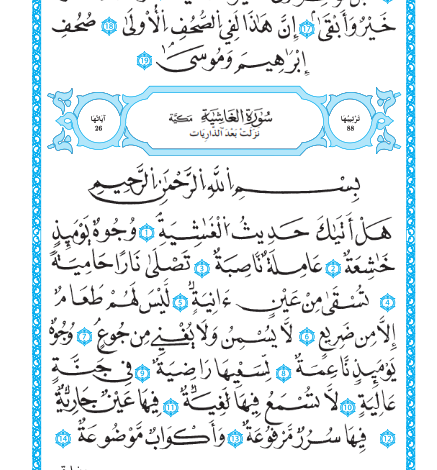 خَيْرٌ وَأَبْقَىٰ ١٧ إِنَّ هَٰذَا لَفِي الصُّحُفِ الْأُولَىٰ ١٨ صُحُفِ
إِبْرَاهِيمَ وَمُوسَىٰ ١٩
ترتيبها 88 سُورَةُ الغَاشِيَةِ مَكيَّة آياتها 26
نَزَلَتْ بَعْدَ الذَّارِيَات
بِسْمِ اللَّهِ الرَّحْمَٰنِ الرَّحِيمِ
هَلْ أَتَىٰكَ حَدِيثُ الْغَٰشِيَةِ 1 وُجُوهٌ يَوْمَئِذٍ
خَٰشِعَةٌ 2 عَامِلَةٌ نَّاصِبَةٌ 3 تَصْلَىٰ نَارًا حَامِيَةً
4 تُسْقَىٰ مِنْ عَيْنٍ ءَانِيَةٍ 5 لَّيْسَ لَهُمْ طَعَامٌ
إِلَّا مِن ضَرِيعٍ 6 لَّا يُسْمِنُ وَلَا يُغْنِي مِن جُوعٍ 7 وُجُوهٌ
يَوْمَئِذٍ نَّاعِمَةٌ 8 لِّسَعْيِهَا رَاضِيَةٌ 9 فِي جَنَّةٍ
عَالِيَةٍ 10 لَّا تَسْمَعُ فِيهَا لَٰغِيَةً 11 فِيهَا عَيْنٌ جَارِيَةٌ
12 فِيهَا سُرُرٌ مَّرْفُوعَةٌ 13 وَأَكْوَابٌ مَّوْضُوعَةٌ 14